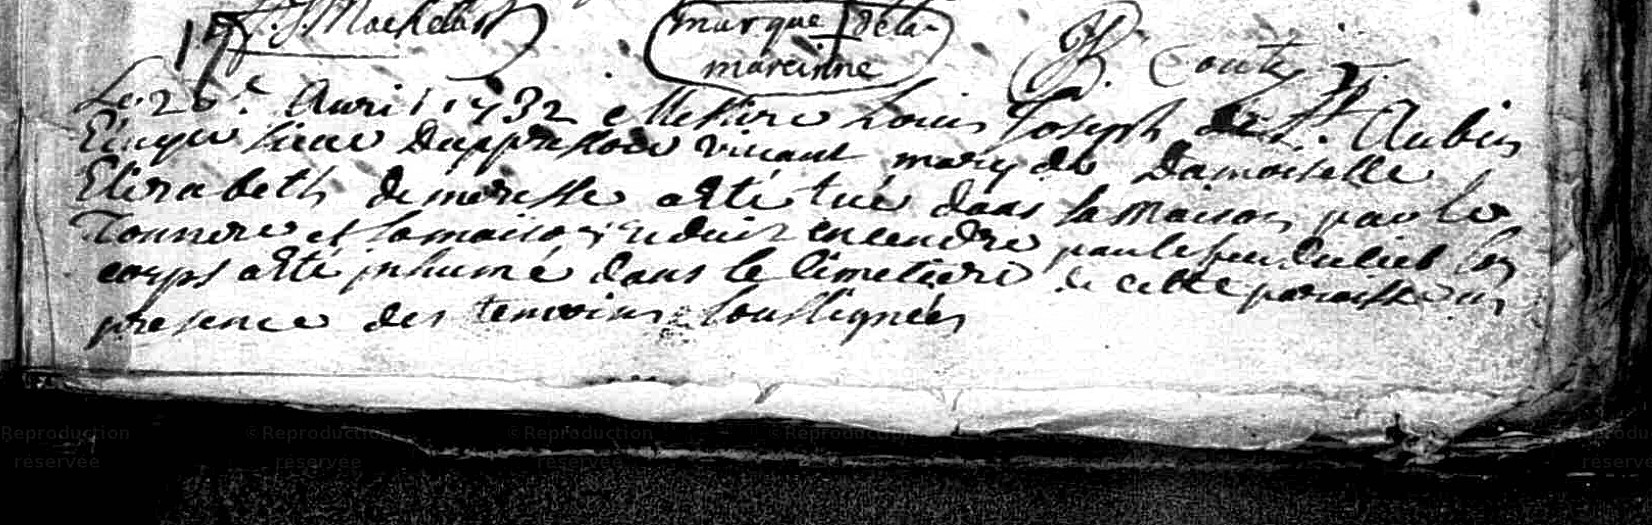 marque de la
mareinne
Le 20e. Auril 1732 Messire Louis Joseph de St. Aubin
Ecuyer sieur viuant mary de Damoiselle
Elizabeth a Eté tué dans sa Maison par le
Tonnere et sa maison reduit en cendre par le feu du Ciel son
corps a Eté inhumé dans le Cimetiere de cette paroisse en
presence des temoins soussignées
© Reproduction réservée
© Reproduction réservée
© Reproduction réservée
© Reproduction réservée